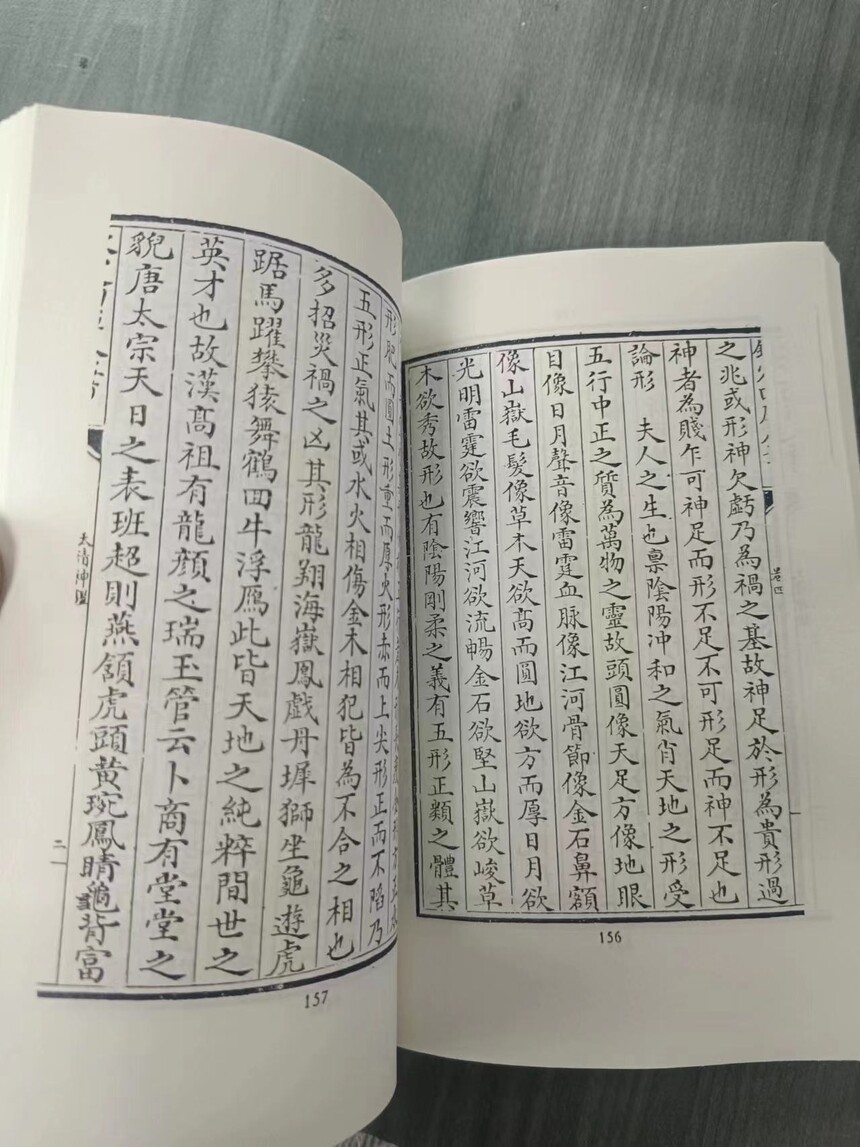 卷四
之兆或形神欠虧乃為禍之基故神足於形為貴形過
神者為賤乍可神足而形不足不可形足而神不足也
論形　夫人之生也稟陰陽冲和之氣肖天地之形受
五行中正之質為萬物之靈故頭圓像天足方像地眼
目像日月聲音像雷霆血脉像江河骨節像金石鼻額
像山嶽毛髮像草木天欲髙而圓地欲方而厚日月欲
光明雷霆欲震響江河欲流暢金石欲堅山嶽欲峻草
木欲秀故形也有陰陽剛柔之義有五形正類之體其
156
形肥而圓土形重而厚火形赤而上尖形正而不陷乃
五形正氣其或水火相傷金木相犯皆為不合之相也
多招災禍之凶其形龍翔海嶽鳳戲丹墀獅坐龜遊虎
踞馬躍攀猿舞鶴回牛浮鴈此皆天地之純粹間世之
英才也故漢髙祖有龍顔之瑞玉管云卜商有堂堂之
貌唐太宗天日之表班超則燕頷虎頭黄琬鳳睛龜背富
太清神鑑
二
157